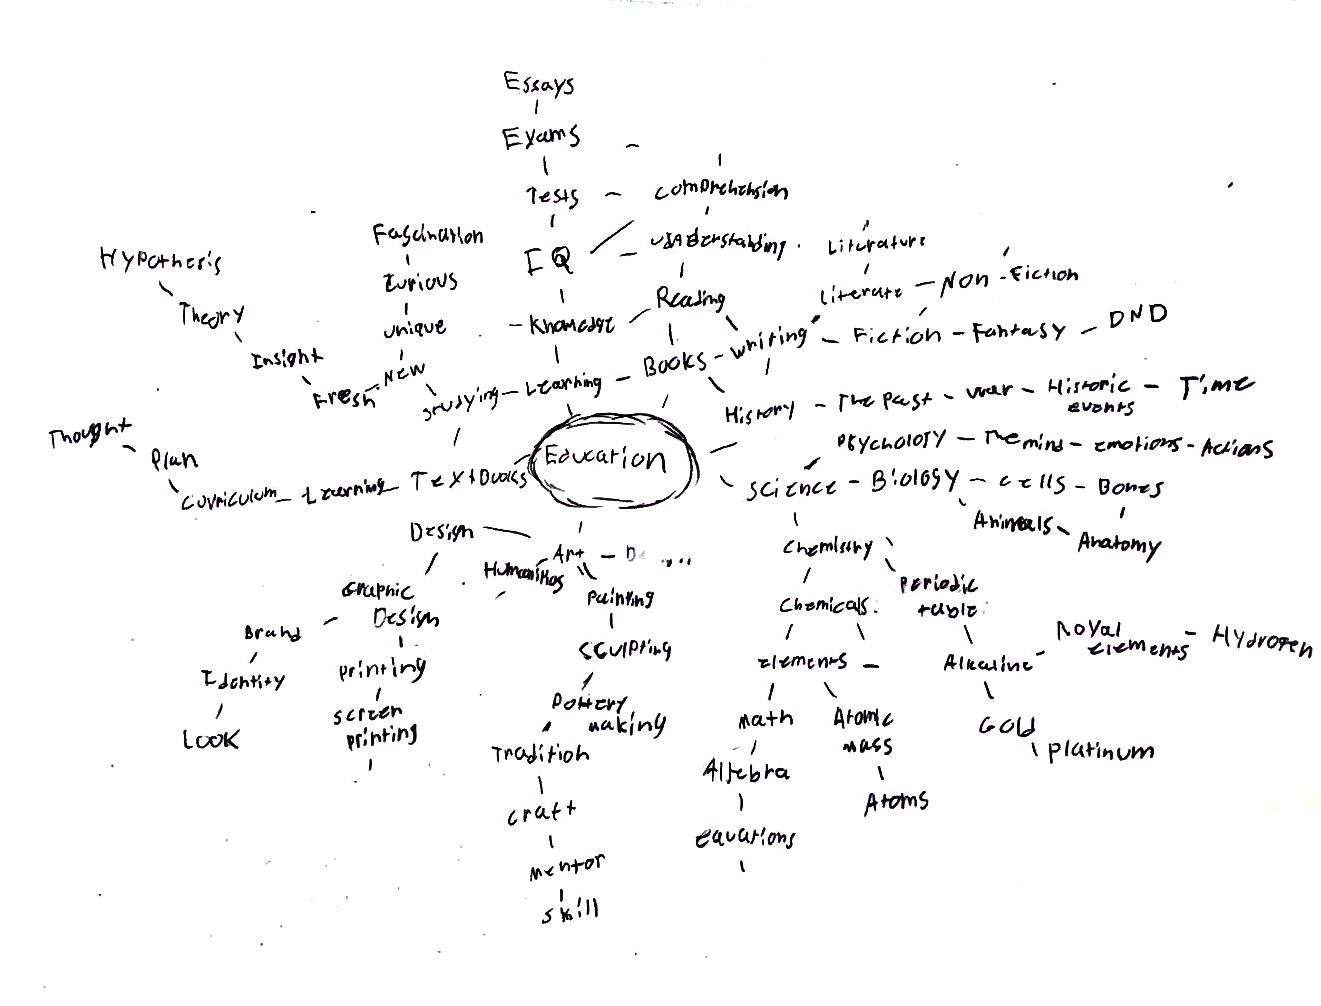 Essays
Exams
Tests
Comprehension
IQ
Understanding
Literature
Fascination
Hypothesis
Curious
Reading
Literate
Non-Fiction
Theory
unique
Knowledge
writing
Fiction
Fantasy
DND
Insight
New
Books
Fresh
Studying
Learning
History
The Past
war
Historic
events
Time
Thought
Plan
Education
Psychology
The mind
emotions
Actions
Curriculum
Learning
TextBooks
Science
Biology
cells
Bones
Design
Art
Chemistry
Animals
Anatomy
Humanities
Graphic
Design
Painting
Chemicals
Periodic
table
Brand
Sculpting
Royal
elements
Hydrogen
Identity
printing
elements
Alkaline
Look
screen
printing
Pottery
making
math
Atomic
mass
Gold
platinum
Tradition
Algebra
Atoms
craft
equations
mentor
skill